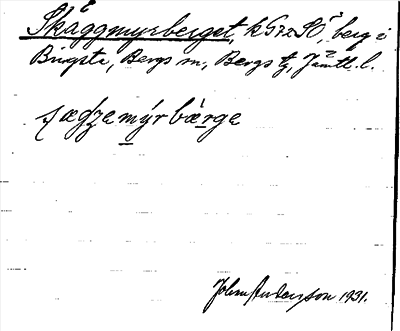 Skäggmyrberget, k 57 z SÖ³, berg i
Brigste, Bergs sn, Bergs tg, Jämtl. l.
sægʒemýrbærge
John Anderson 1931.